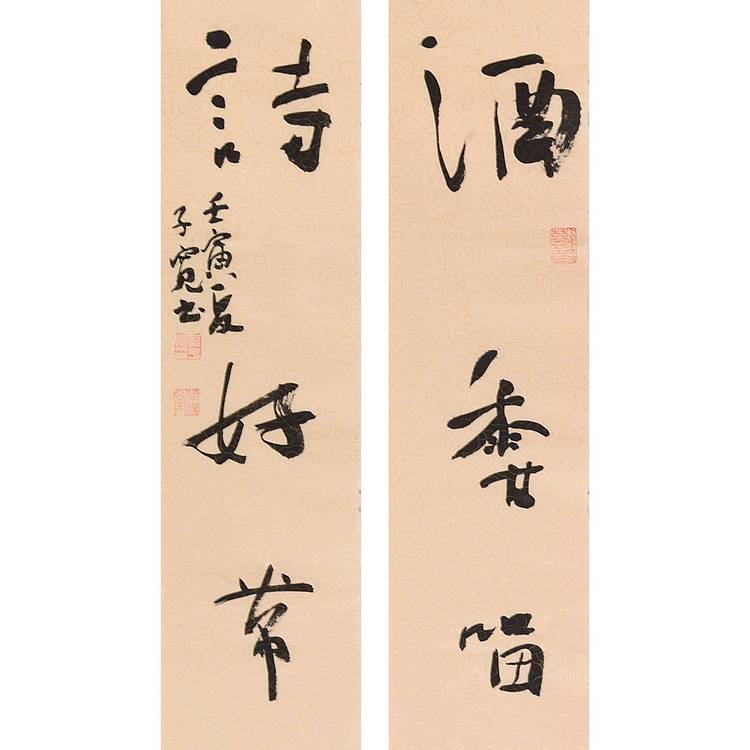 酒香留
詩好帶
壬寅夏
子寬书